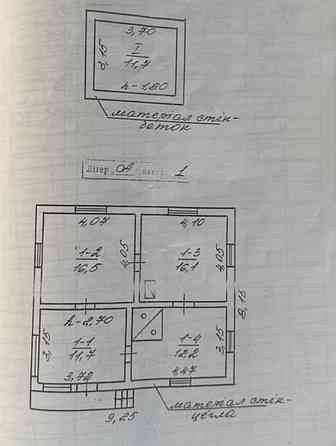 3,70
3,15
I
11,7
h-1,80
матеріал стін-
бетон
Літер
1
4,07
4,10
1-2
16,5
4,05
1-3
16,1
4,05
8,15
h-2,70
3,15
1-1
11,7
3,72
1-4
12,2
3,15
4,47
9,25
матеріал стін-
цегла